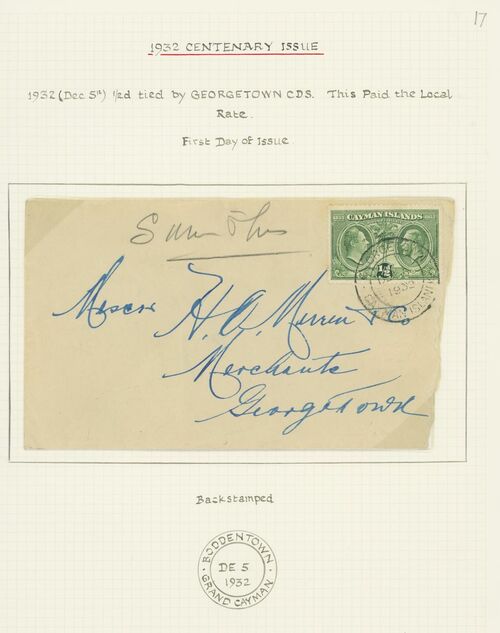 17
1932 CENTENARY ISSUE
1932 (Dec 5th) ½d tied by GEORGETOWN CDS. This Paid the Local
Rate.
First Day of Issue
CAYMAN ISLANDS
GEORGETOWN
1932
CAYMAN ISLANDS
Messrs H. O. Merren & Co
Merchants
Georgetown
Backstamped
BODDENTOWN
DE 5
1932
GRAND CAYMAN